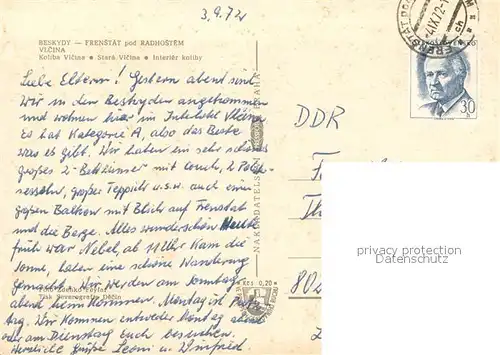 3.9.72
BESKYDY — FRENŠTÁT pod RADHOŠTĚM
VLČINA
Koliba Vlčina ● Stará Vlčina ● Interiér koliby
Liebe Eltern! Gestern abend sind
wir in den Beskyden angekommen
und wohnen hier im Interhotel Vlčina
Es hat Kategorie A, also das Beste
was es gibt. Wir haben ein sehr schönes
großes 2-Bettzimmer mit Couch, 2 Polster-
sesseln, großer Teppich u.s.w. auch einen
großen Balkon mit Blick auf Frenštát
und die Berge. Alles wunderschön. Heute
früh war Nebel, ab 11 Uhr kam die
Sonne, haben eine schöne Wanderung
gemacht. Wir werden am Sonntag
abend heim kommen. Montag ist
Tag. Wir kommen entweder Montag abend
oder am Dienstag Euch besuchen.
Herzliche Grüße Leoni u. Winfried
Foto Zdenko Feyfar
Tisk Severografia Děčín
Kčs 0,20
NAKLADATELSTVÍ
PRAHA
DDR
30
80
privacy protection
by ansichtskarten-lexikon.de